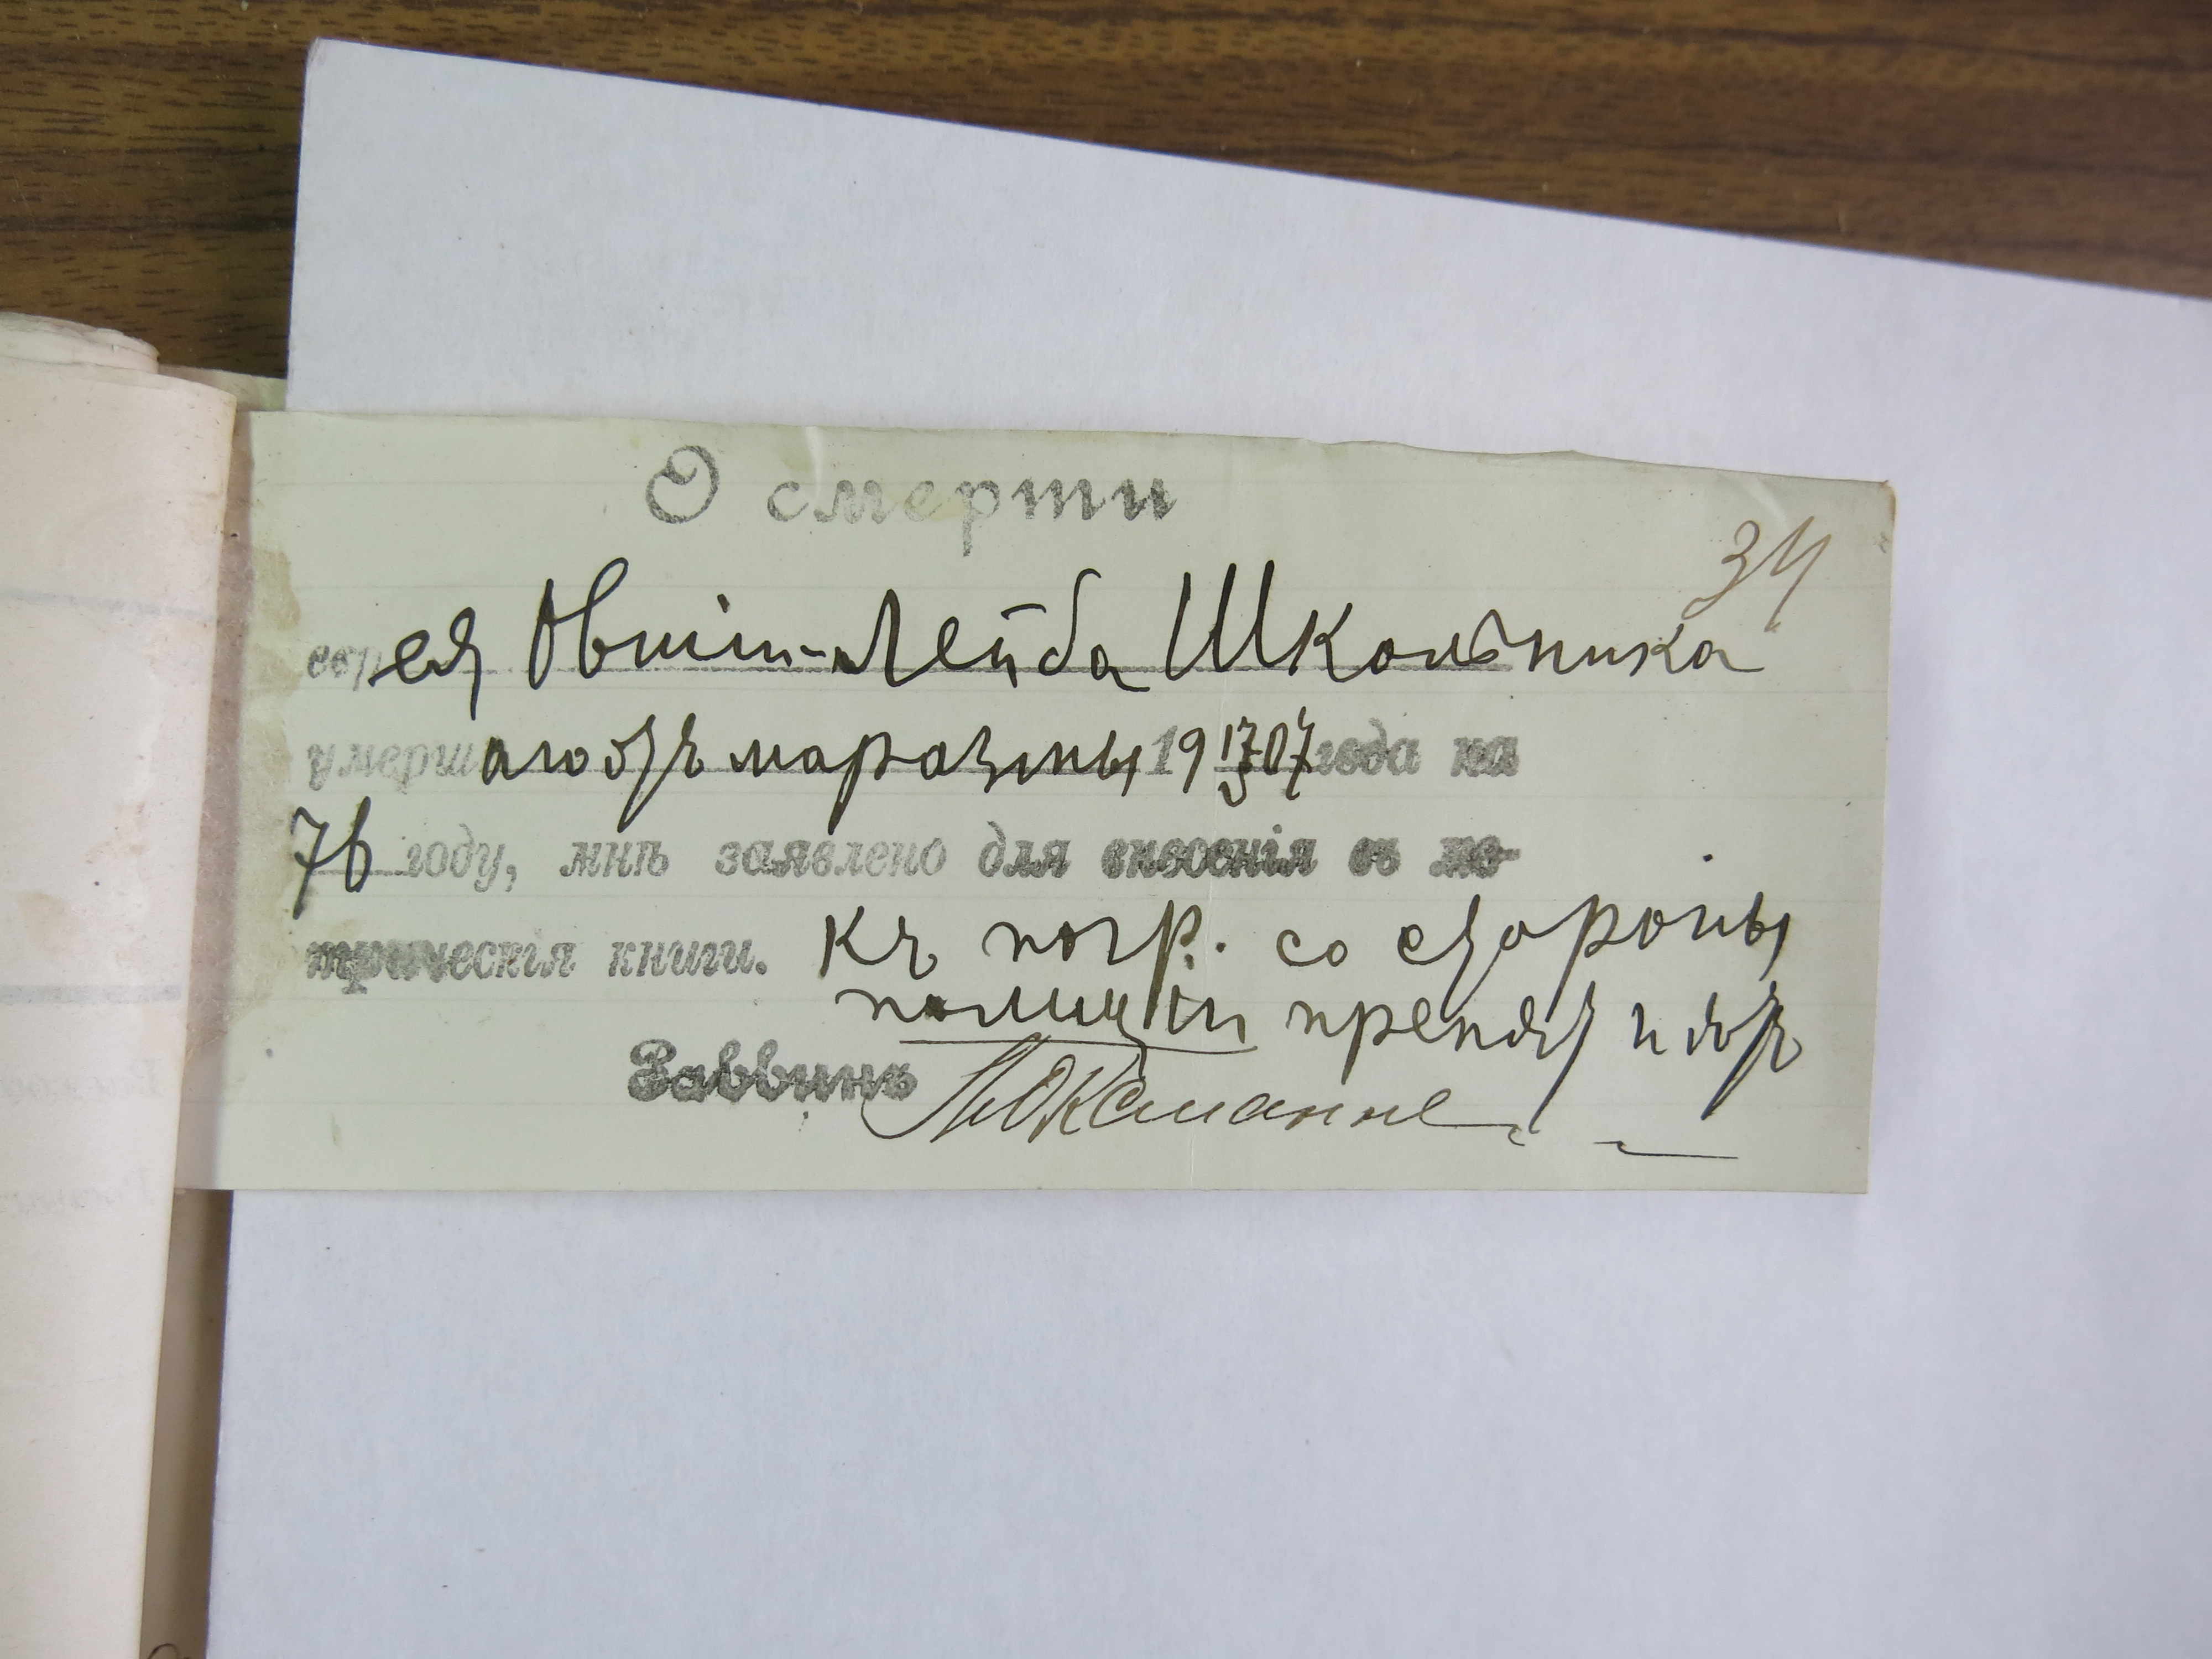 О смерти
34
еврея Овший-Лейба Школьника
умершаго отъ маразмы 19 17/V 07 года на
76 году, мнѣ заявлено для внесенія въ ме-
трическія книги. Къ погр. со стороны
полиціи препят нѣтъ
Раввинъ